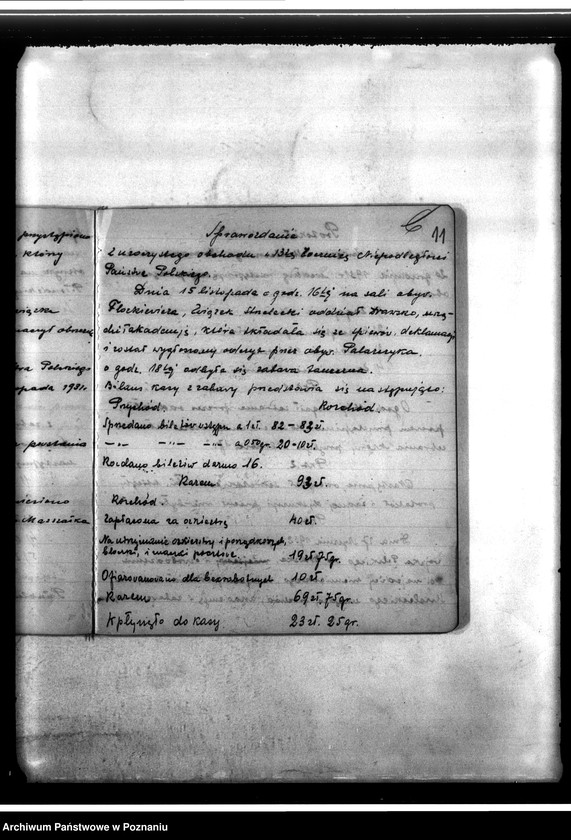 przystąpiono
który
Polskiego
opada 1931r.
powstania
Marszałka
11
Sprawozdanie
z uroczystego obchodu 13tej Rocznicy Niepodległości
Państwa Polskiego.
Dnia 15 listopada o godz. 16tej na sali obyw.
Flockiewicza, Związek Strzelecki oddział Drawsko, urzą-
dził akademję, która składała się ze śpiewu, deklamacji
i został wygłoszony odczyt przez obyw. Patarzyka.
o godz. 18tej odbyła się zabawa taneczna.
Bilans kasy z zabawy przedstawia się następująco:
Przychód Rozchód
Sprzedano biletów wstępu a 1 zł. 82 – 82 zł.
–„– –„– –„– a 0,50 gr. 20–10 zł.
Rozdano biletów darmo 16.
Razem 93 zł.
Rozchód.
Zapłacona za orkiestrę 40 zł.
Na utrzymanie orkiestry i porządkowych,
bloczki, i znaczki pocztowe. 19 zł 75 gr.
Ofiarowano dla bezrobotnych 10 zł.
Razem 69 zł. 75 gr.
Wpłynęło do kasy 23 zł. 25 gr.
Archiwum Państwowe w Poznaniu